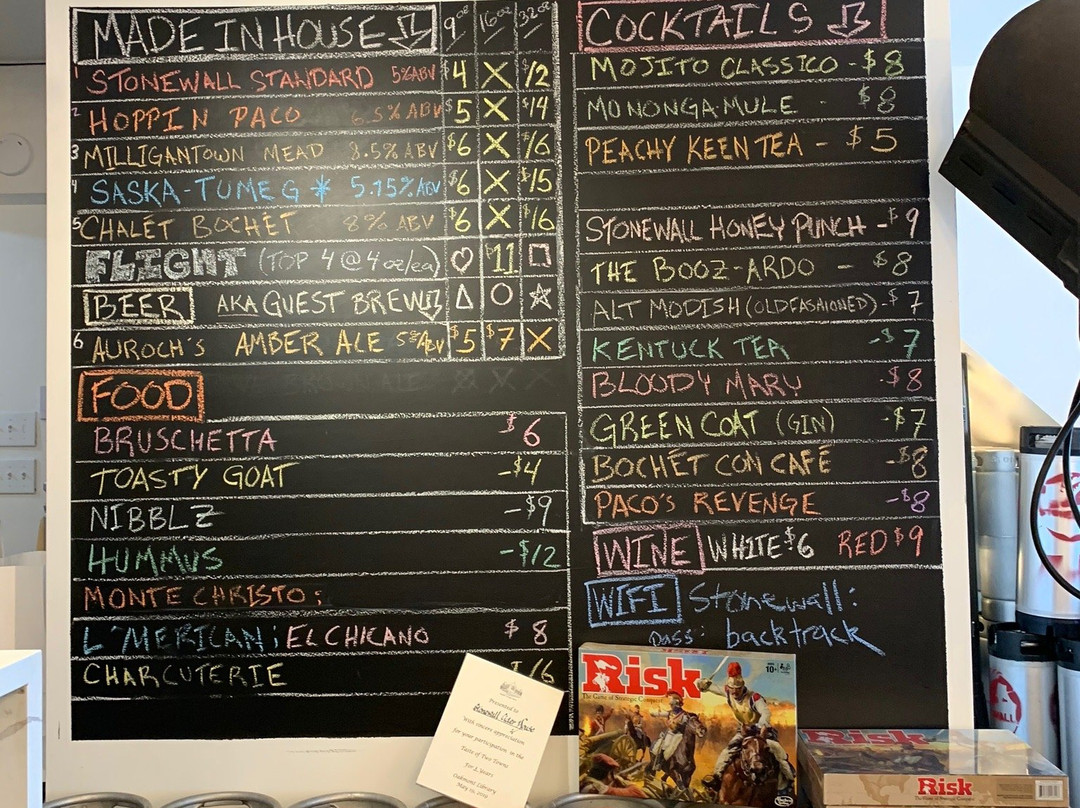 MADE IN HOUSE 9oz 16oz 32oz
1 STONEWALL STANDARD 5% ABV $4 X $12
2 HOPPIN PACO 6.5% ABV $5 X $14
3 MILLIGANTOWN MEAD 8.5% ABV $6 X $16
4 SASKA-TUMEG * 5.75% ABV $6 X $15
5 CHALÉT BOCHÉT 8% ABV $6 X $16
FLIGHT (TOP 4 @ 4oz/ea) $11
BEER AKA GUEST BREW
6 AUROCH'S AMBER ALE 5% ABV $5 $7 X
FOOD
BRUSCHETTA $6
TOASTY GOAT -$4
NIBBLZ -$9
HUMMUS -$12
MONTE CHRISTO:
L'MERICAN; EL CHICANO $8
CHARCUTERIE
COCKTAILS
MOJITO CLASSICO - $8
MONONGA-MULE - $8
PEACHY KEEN TEA - $5
STONEWALL HONEY PUNCH - $9
THE BOOZ-ARDO - $8
ALT MODISH (OLDFASHIONED) - $7
KENTUCK TEA -$7
BLOODY MARY -$8
GREEN COAT (GIN) -$7
BOCHÉT CON CAFÉ -$8
PACO'S REVENGE -$8
WINE WHITE $6 RED $9
WIFI Stonewall:
pass: backtrack
Presented to
Stonewall Cider House
With sincere appreciation
for your participation in the
Taste of Two Towns
Oakmont Library
Risk
The Game of Strategic Conquest
10+
Risk
Risk
The Game of Strategic Conquest